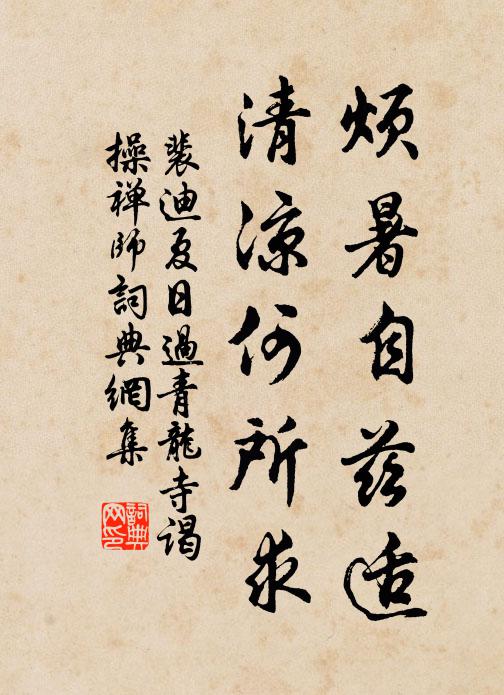 烦暑自兹适
清凉何所求
裴迪夏日過青龍寺谒
操禅师詞典網集
詞典网印